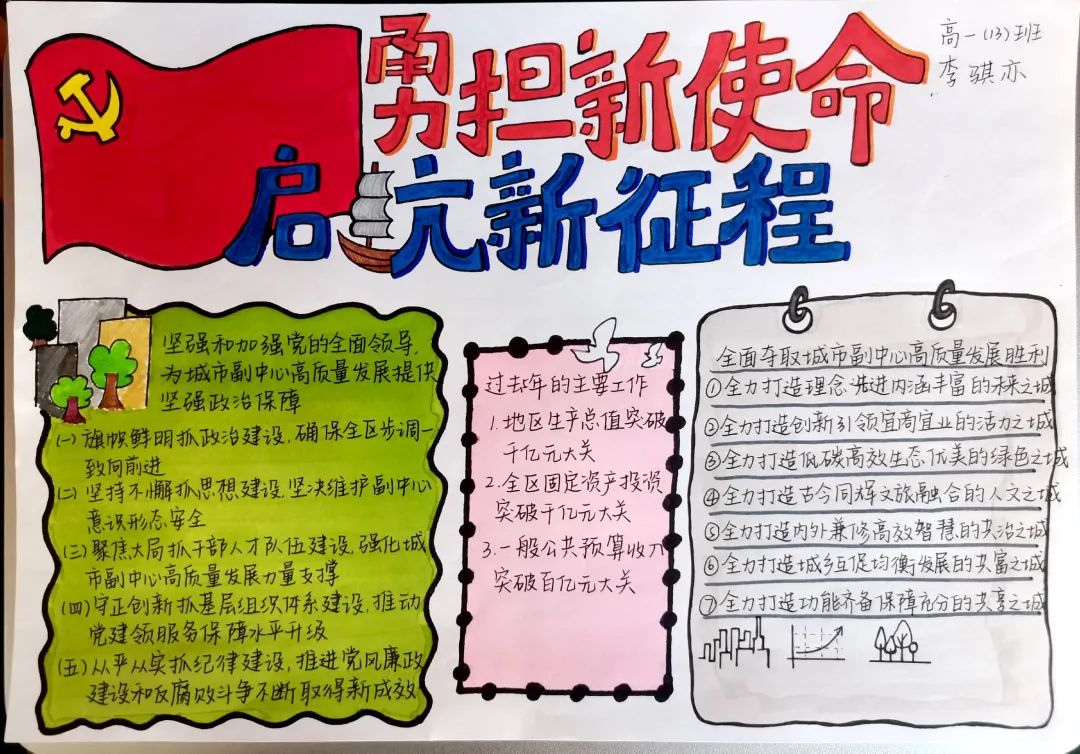 勇担新使命
启航新征程
高一(13)班
李骐亦
坚强和加强党的全面领导,
为城市副中心高质量发展提供
坚强政治保障
(一) 旗帜鲜明抓政治建设,确保全区步调一
致向前进
(二) 坚持不懈抓思想建设,坚决维护副中心
意识形态安全
(三) 聚焦大局抓干部人才队伍建设,强化城
市副中心高质量发展力量支撑
(四) 守正创新抓基层组织体系建设,推动
党建领服务保障水平升级
(五) 从严从实抓纪律建设,推进党风廉政
建设和反腐败斗争不断取得新成效
过去5年的主要工作
1.地区生产总值突破
千亿元大关
2.全区固定资产投资
突破千亿元大关
3.一般公共预算收入
突破百亿元大关
全面夺取城市副中心高质量发展胜利
①全力打造理念先进内涵丰富的未来之城
②全力打造创新引领宜商宜业的活力之城
③全力打造低碳高效生态优美的绿色之城
④全力打造古今同辉文旅融合的人文之城
⑤全力打造内外兼修高效智慧的共治之城
⑥全力打造城乡互促均衡发展的共富之城
⑦全力打造功能齐备保障充分的共享之城